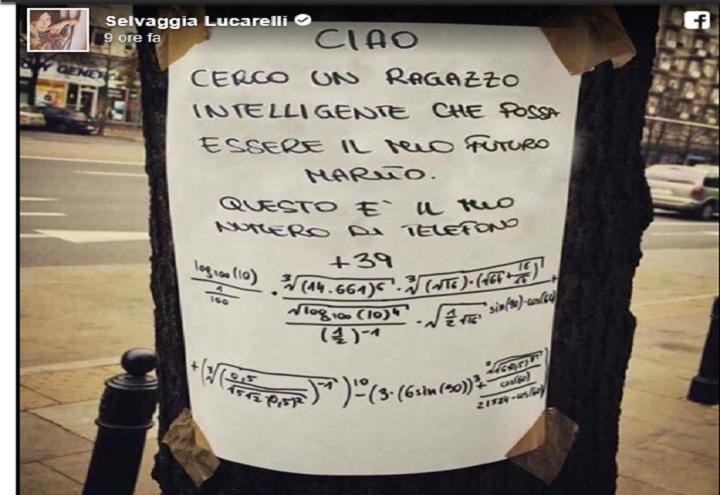 Selvaggia Lucarelli
9 ore fa
f
CIAO
CERCO UN RAGAZZO
INTELLIGENTE CHE POSSA
ESSERE IL MIO FUTURO
MARITO.
QUESTO E' IL MIO
NUMERO DI TELEFONO
+39
log₁₀₀(10) / (1/100) · (∛(14.661)⁶ · ∛((√16)·(√64+16/√4))) /
(√(log₁₀₀(10)⁴) / (1/2)⁻¹ · √(1/2 √16) sin(90)·cos(60)) +
+ (∛(0,5 / )⁻¹)¹⁰ - (3·(6sin(90))³ + cos(60)